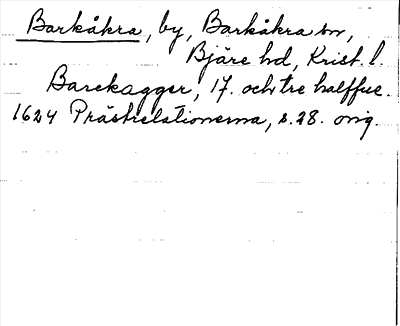 Barkåkra, by, Barkåkra sn,
Bjäre hd, Krist. l.
Barekagger, 17. och tre halffue.
1624 Prästrelationerna, s. 28. orig.